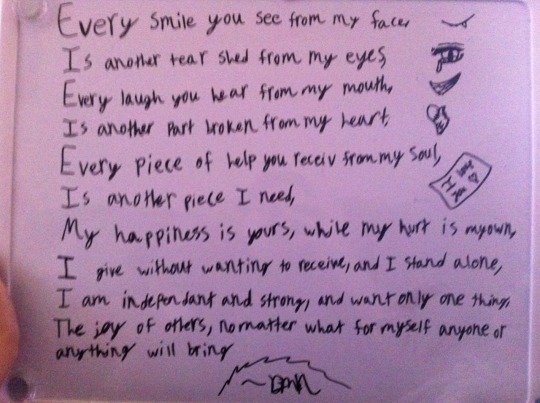 Every smile you see from my face,
Is another tear shed from my eyes,
Every laugh you hear from my mouth,
Is another part broken from my heart,
Every piece of help you receiv from my soul,
Is another piece I need,
My happiness is yours, while my hurt is my own,
I give without wanting to receive, and I stand alone,
I am independant and strong, and want only one thing,
The joy of others, no matter what for myself anyone or
anything will bring